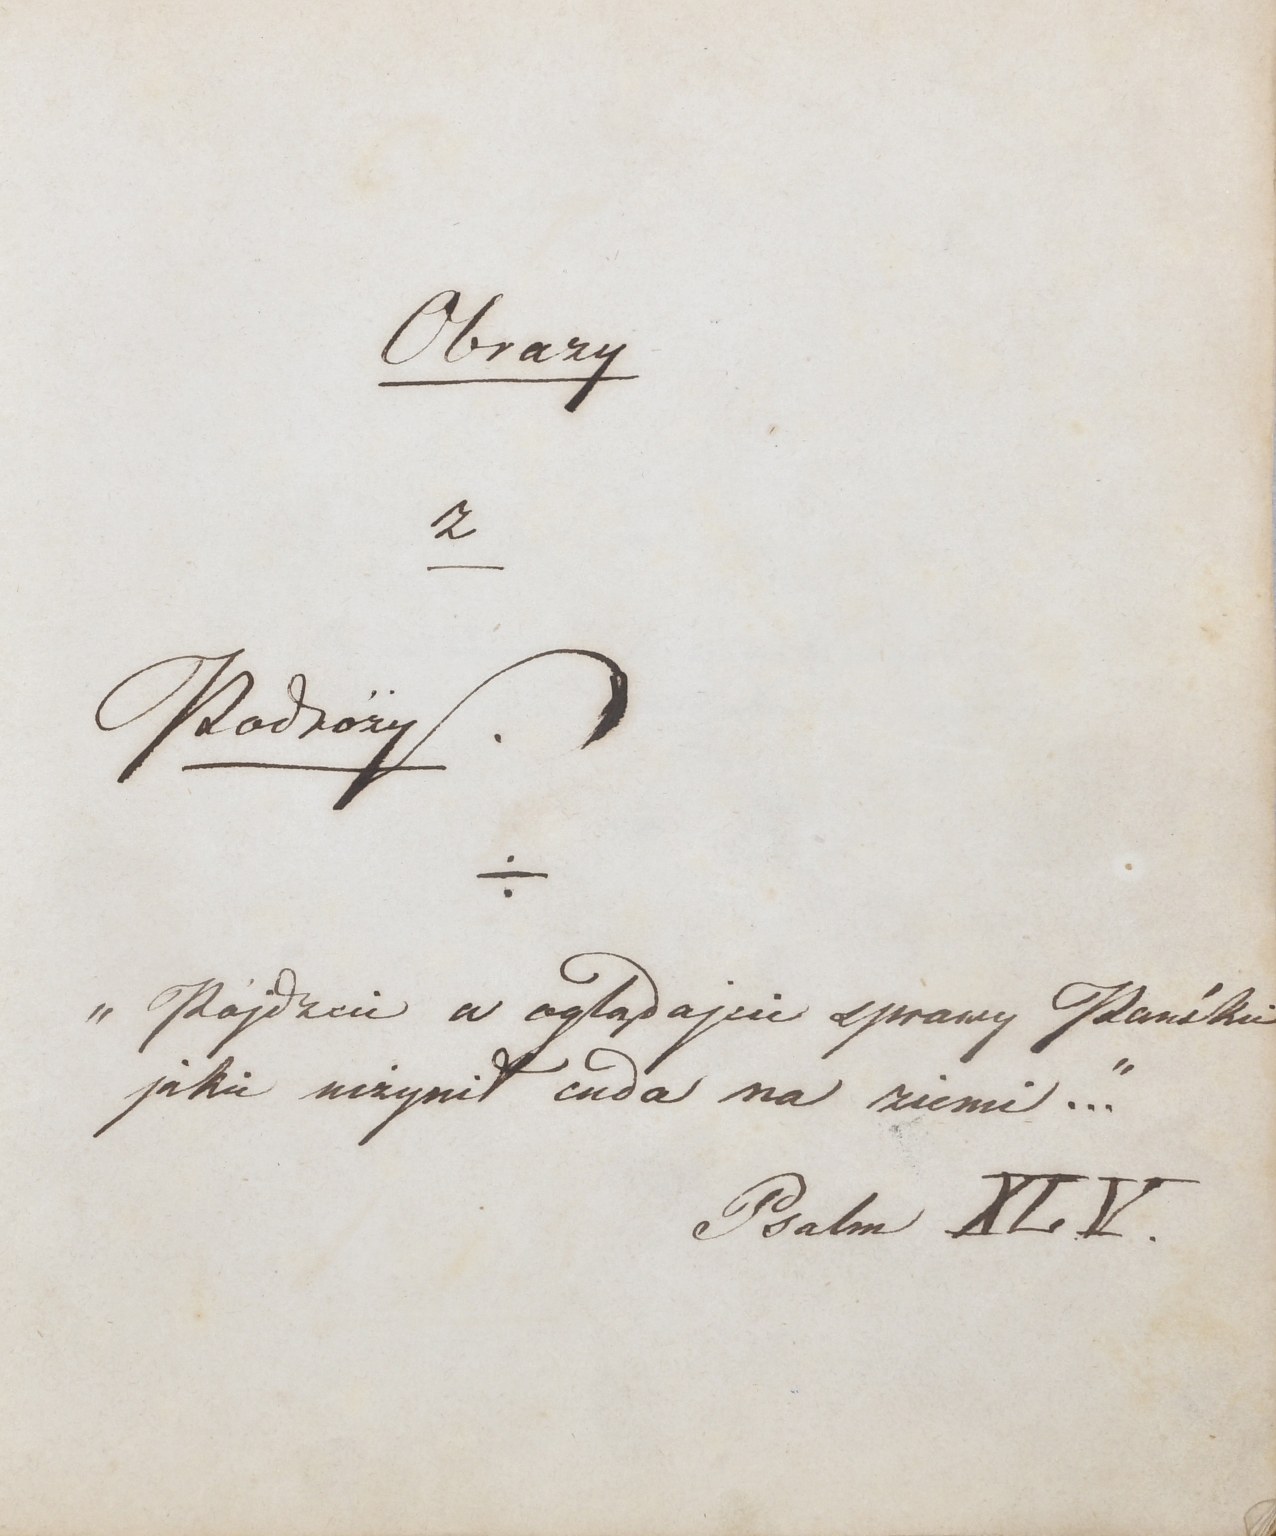 Obrazy
z
Podróży.
÷
„Pójdźcie a oglądajcie sprawy Pańskie
jakie uczynił cuda na ziemi..."
Psalm XLV.